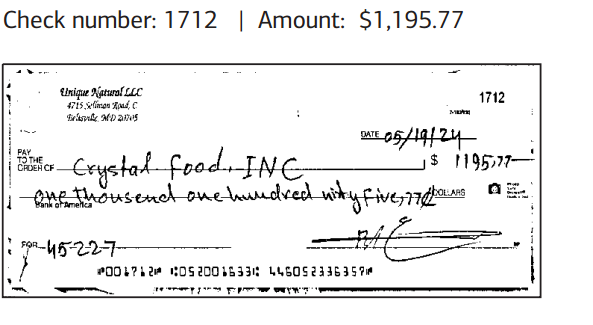 Check number: 1712 | Amount: $1,195.77
Unique Natural LLC
4715 Sellman Road, C
Beltsville, MD 20705
1712
DATE 05/19/24
PAY TO THE ORDER OF Crystal food. INC $ 1195.77
one thousend one hundred ninty five, 77¢ DOLLARS
Bank of America
FOR 45-227
⑈001712⑈ ⑆052001633⑆ 446052336359⑈